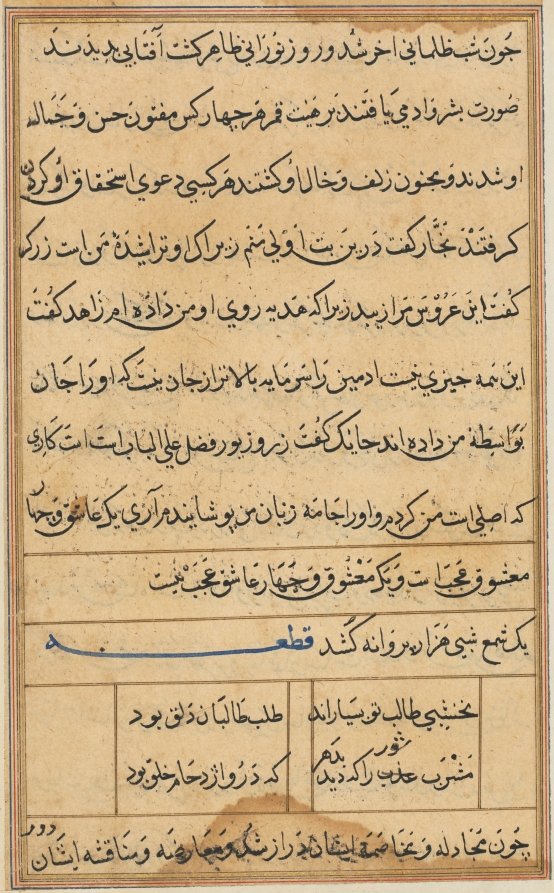 چون شب ظلمانی اخر شد و روز نورانی ظاهر کشت آفتابی دیدند
صورت بشر و ادمی یافتند بر هیئت قمر هر چهار کس مفتون حسن و جمال
او شدند و مجنون زلف و خال او کشتند هر کسی دعوی استحقاق او کردن
کرفتند نجار کفت درین بت اولی منم زیراک او تراشیدۀ من است زرکر
کفت این عروس مرا زیبد زیراکه هدیه روی او من داده ام زاهد کفت
این همه چیزی نیست ادمی را سرمایه بالاتر از جان نیست که او را جان
بواسطۀ من داده اند حایک کفت زیر و زیور فضل علی اللباس است کاری
که اصلی است من کردم و او را جامه زبان من پوشانیدم آری یک عاشق و چهار
معشوق عجب است و یک معشوق و چهار عاشق عجب نیست
یک شمع شبی هزار پروانه کشد قطعه
نخشبی طالب تو بسیاراند طلب طالبان دلق بود
مشرب عذب را که دید بدهر شور که درو ازدحام خلق بود
چون مجادله و مخاصمۀ ایشان دراز شد و معارضه و مناقشه ایشان دور